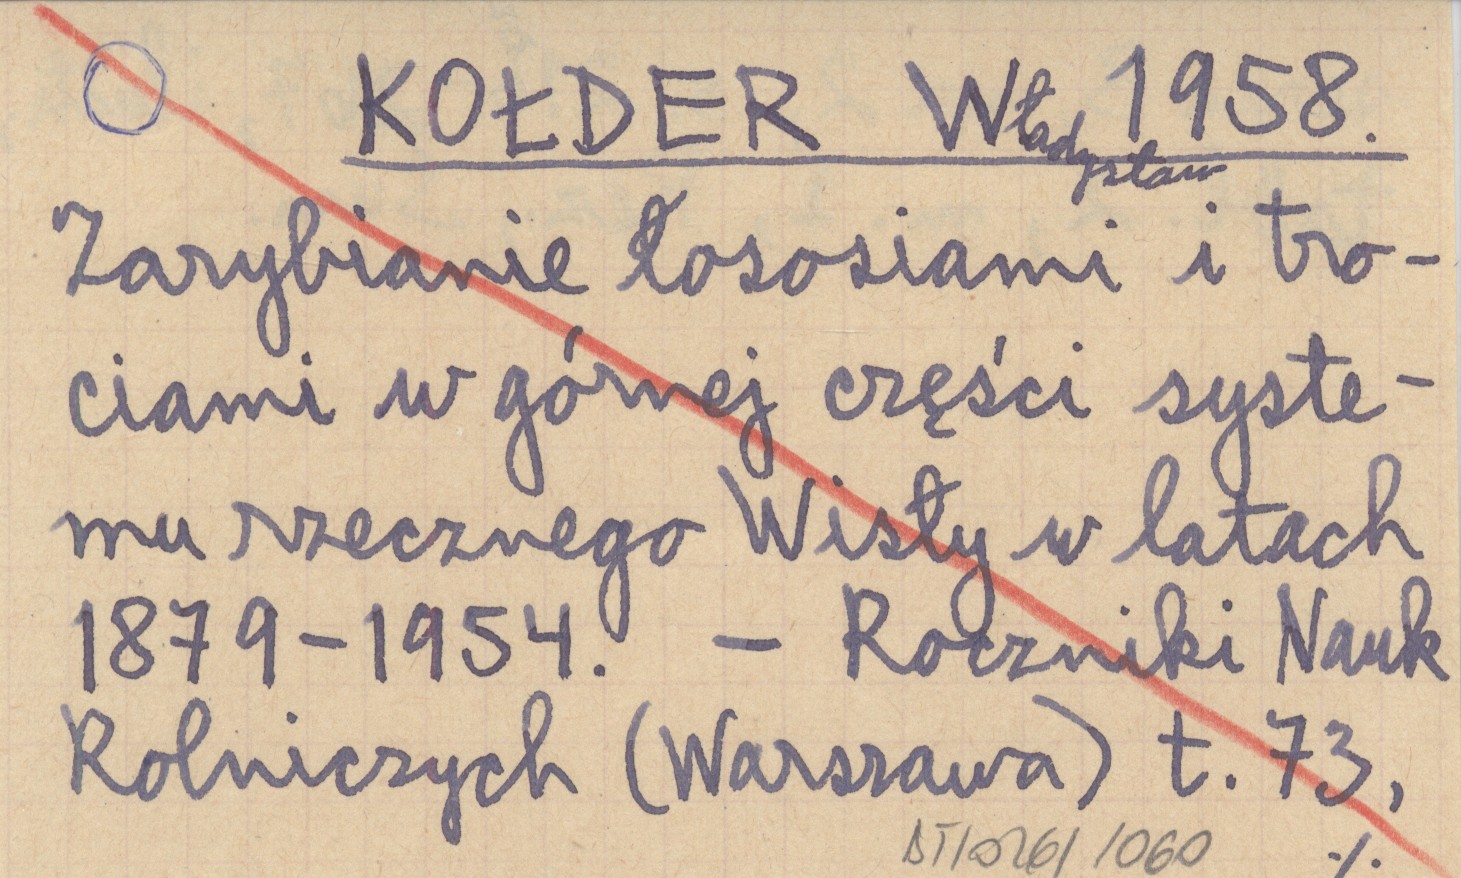 KOŁDER Władysław 1958.
Zarybianie łososiami i tro-
ciami w górnej części syste-
mu rzecznego Wisły w latach
1879-1954. - Roczniki Nauk
Rolniczych (Warszawa) t. 73,
/060 ./.